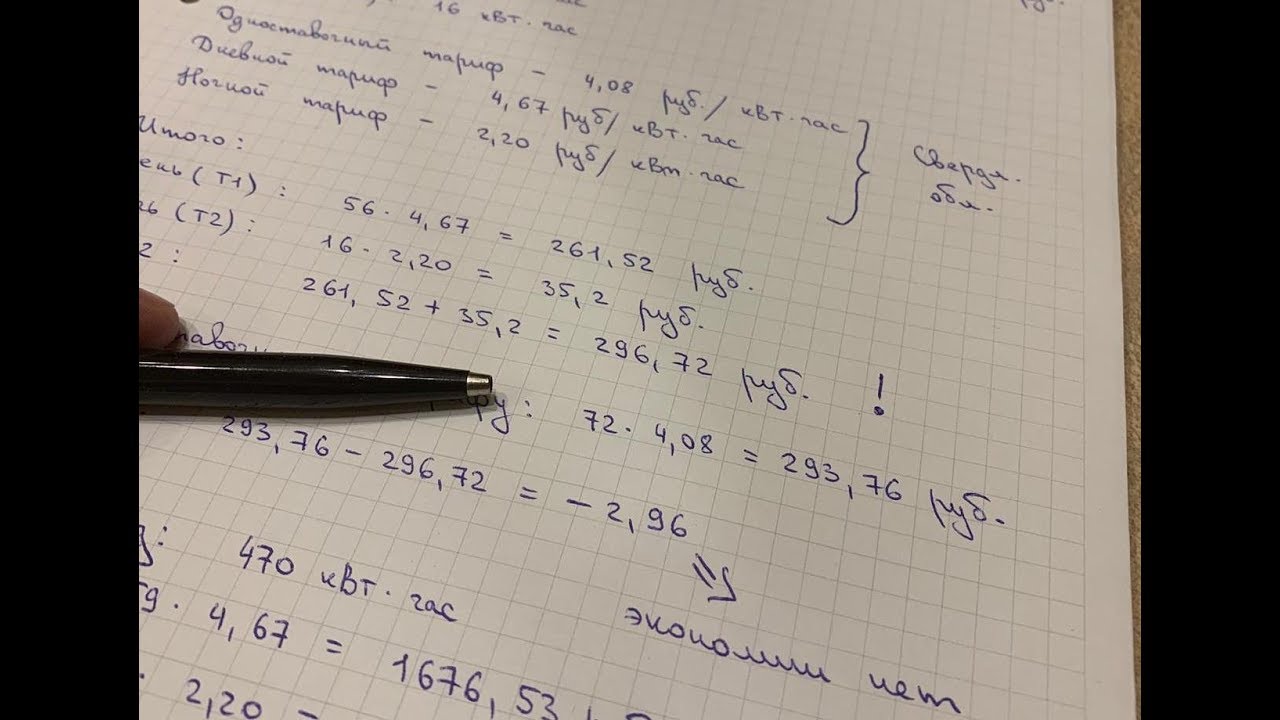 16 кВт·час
Одноставочный тариф – 4,08 руб./кВт·час
Дневной тариф – 4,67 руб/кВт·час
Ночной тариф – 2,20 руб/кВт·час
Свердл.
обл.
Итого:
ень (Т1): 56 · 4,67 = 261,52 руб.
чь (Т2): 16 · 2,20 = 35,2 руб.
2: 261,52 + 35,2 = 296,72 руб. !
72 · 4,08 = 293,76 руб.
293,76 – 296,72 = – 2,96
экономии нет
д: 470 кВт·час
59 · 4,67 = 1676,53
2,20 =